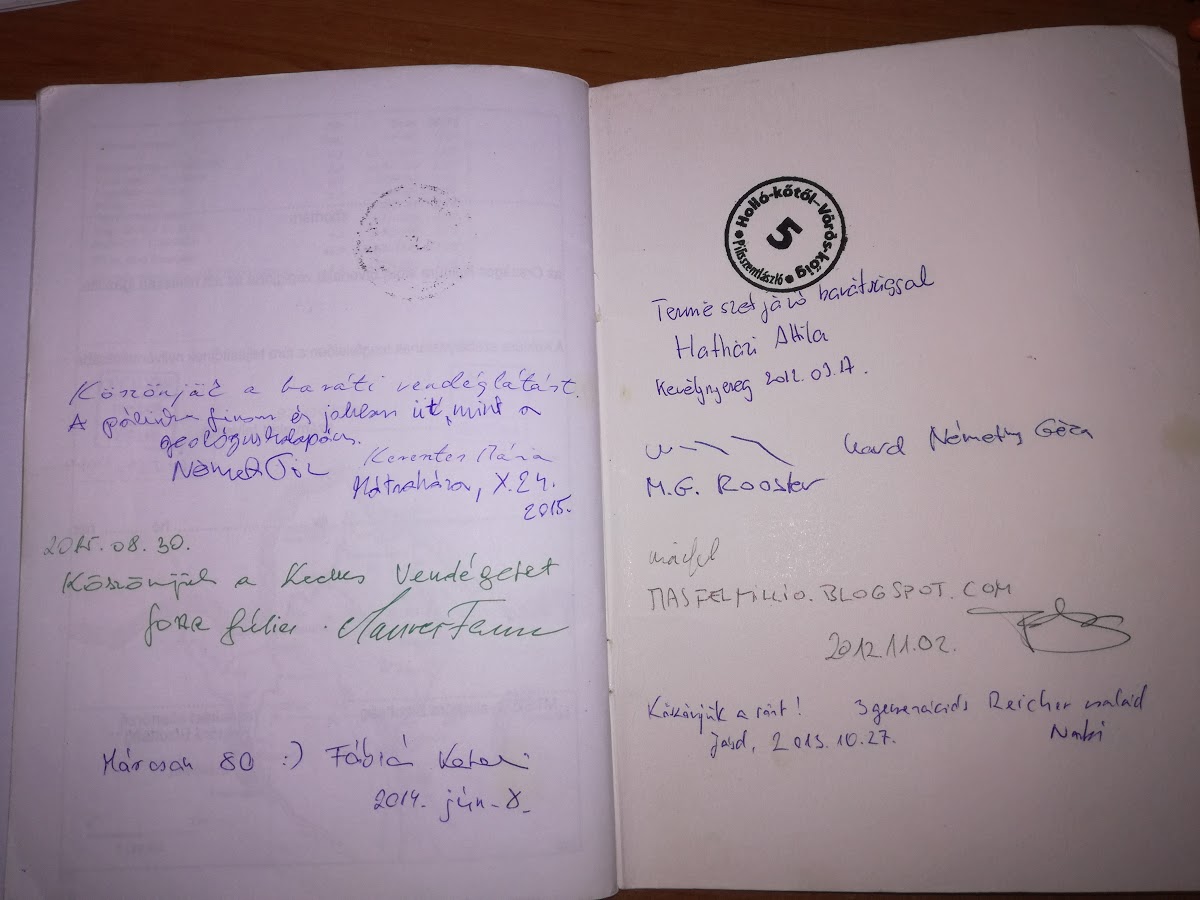 Köszönjük a baráti vendéglátást.
A pálinka finom és jobban üt, mint a
geológuskalapács.
Kerentes Mária
Mátraháza, X.24.
2015.
2015.08.30.
Köszönjük a Kedves Vendégeket
Márcsak 80 :) Fábián Kata
2014. jún. 8.
Holló-kőtől-Vörös-kőig
5
Pilisszentlászló
Természetjáró barátsággal
Hatházi Attila
Kevélynyereg 2012.09.17.
Németh Géza
M.G. Rooster
MASFELMILLIO.BLOGSPOT.COM
2012.11.02.
Köszönjük a sört! 3 generációs Reicher család
Jásd, 2013.10.27.